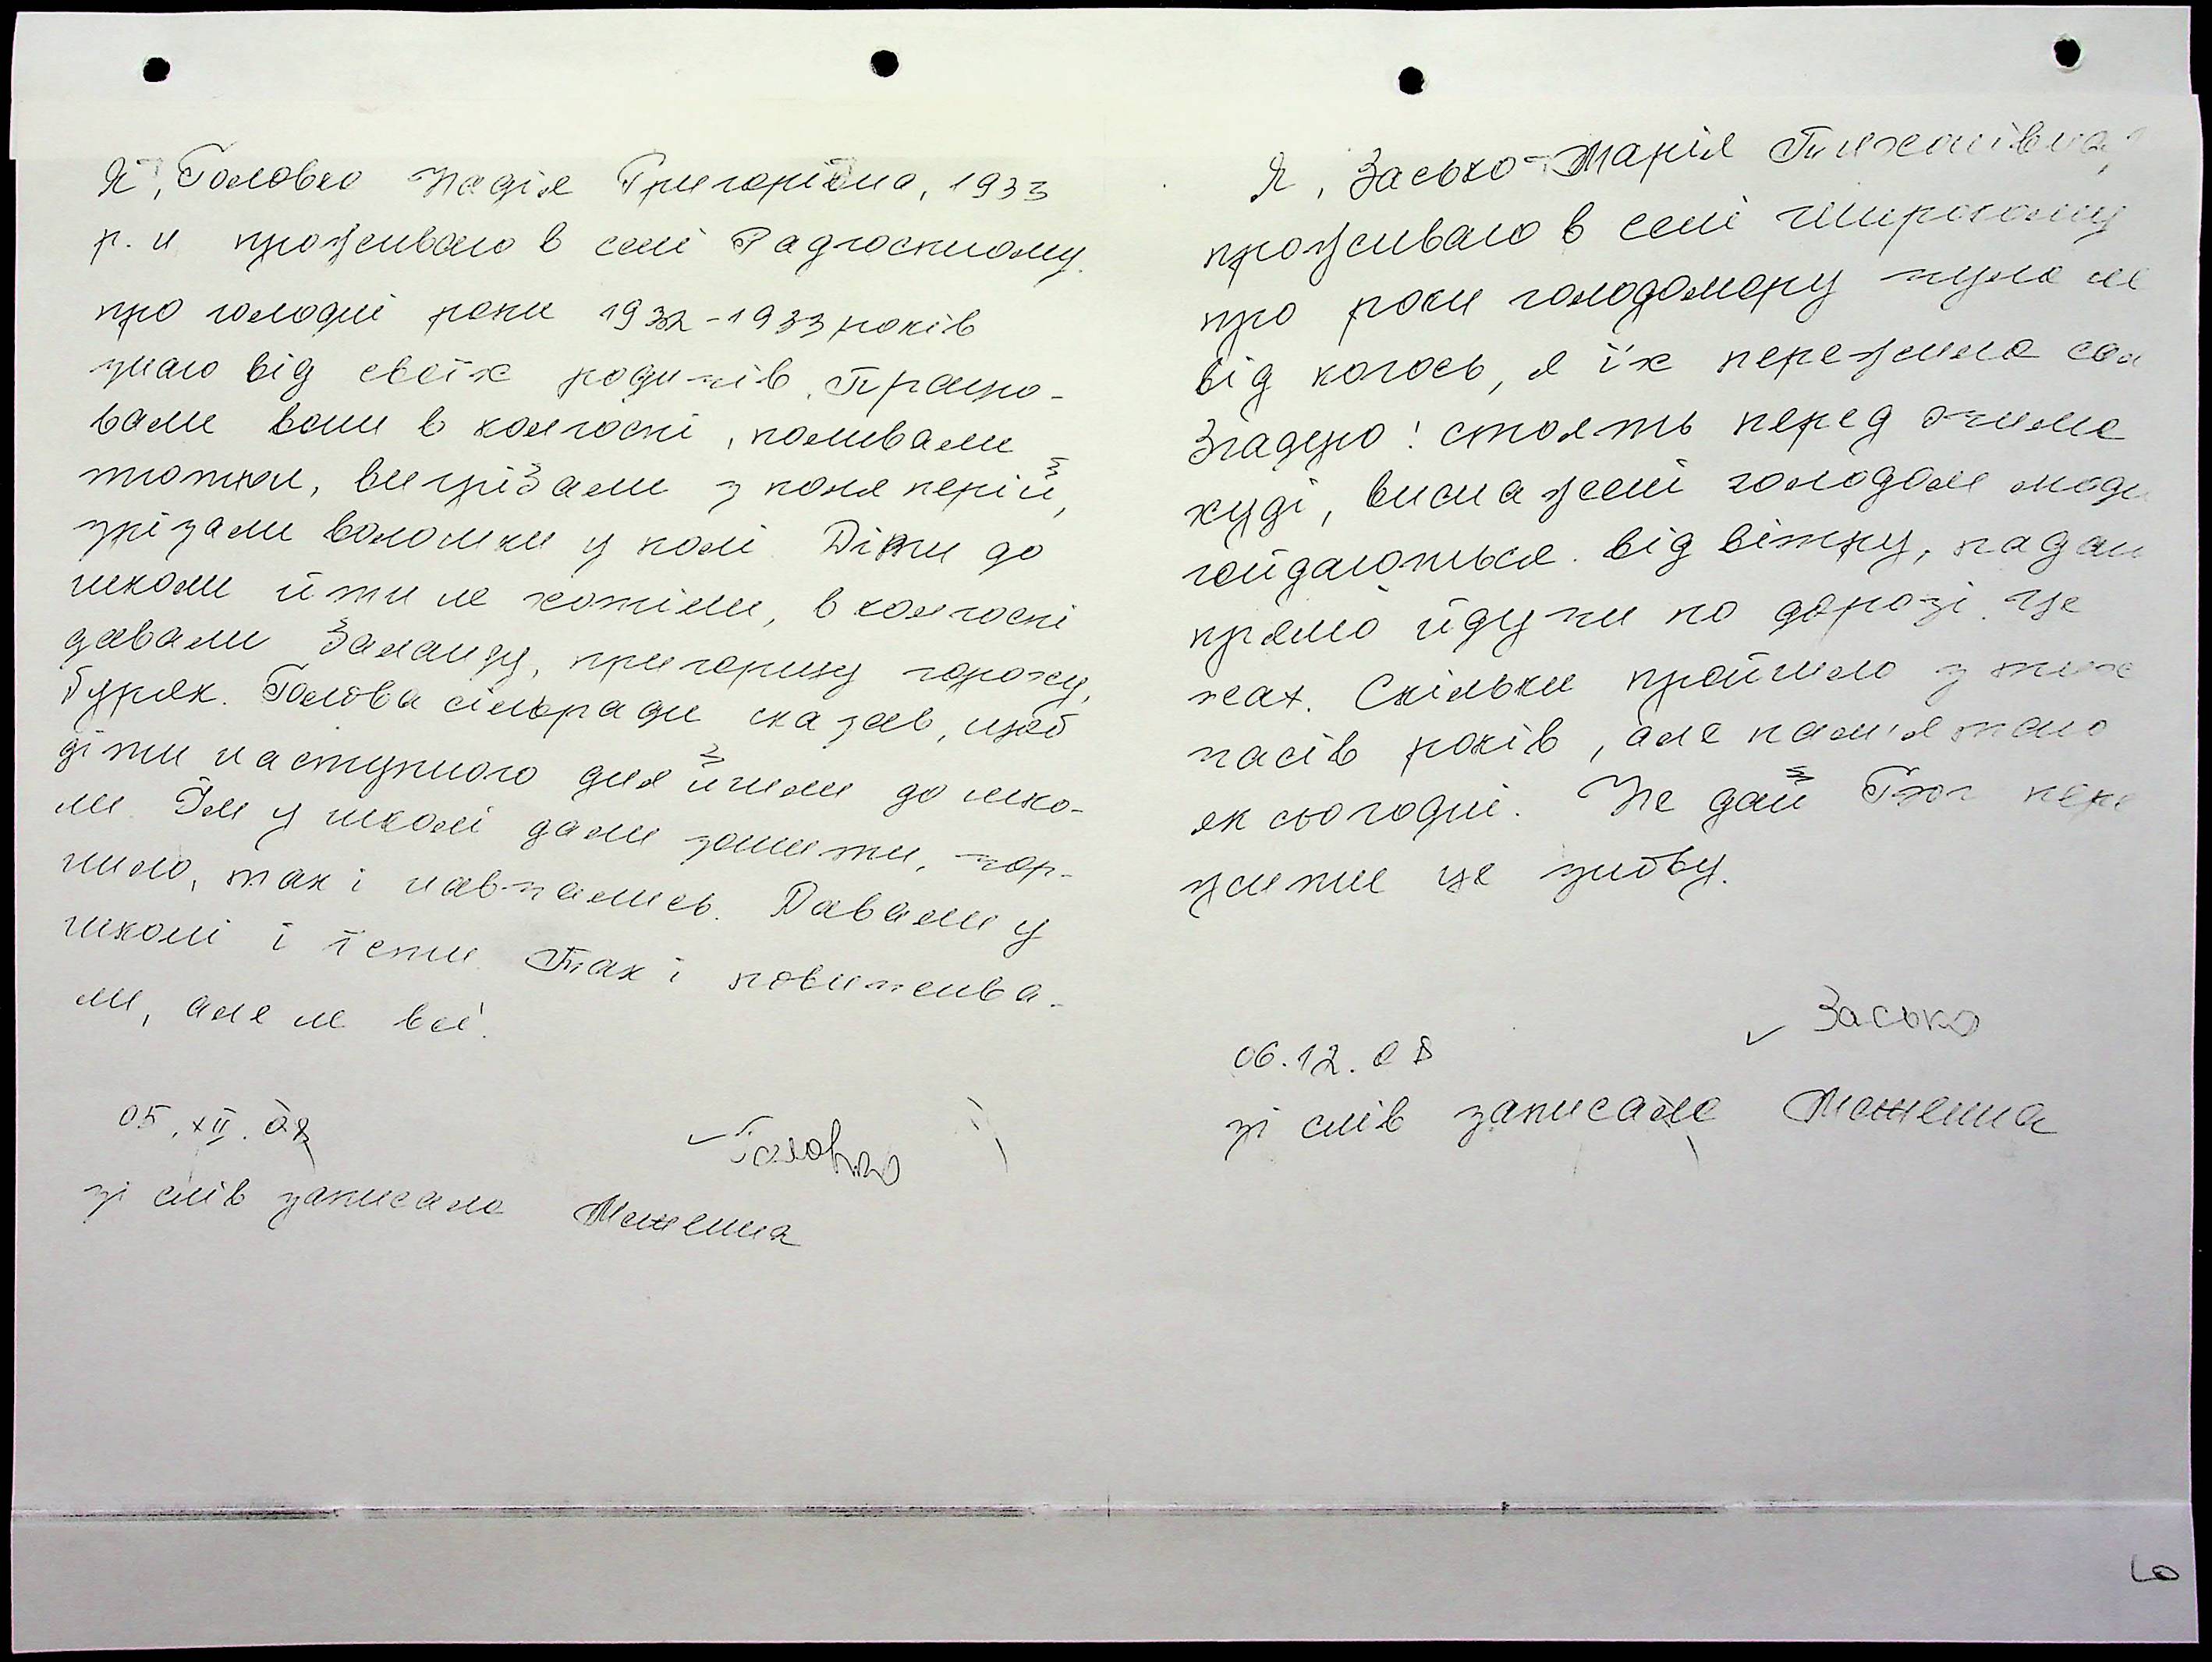 Я, Головко Надія Григорівна, 1933
р. н проживаю в селі Радгоспному.
про голодні роки 1932-1933 років
знаю від своїх родичів. Працю-
вали вони в колгоспі, поливали
тютюн, вирізали з поля перій,
зрізали волошки у полі. Діти до
школи йти не хотіли, в колгоспі
давали баланду, пригоршу гороху,
буряк. Голова сільради сказав, щоб
діти наступного дня йшли до шко-
ли. Їм у школі дали зошити, чор-
нило, так і навчались. Давали у
школі і їсти. Так і повижива-
ли, але не всі.
05.XII.08
Головко
зі слів записала
Я, Заско Марія Тихонівна,
проживаю в селі Широкому
про роки голодомору чула не
від когось, я їх пережила сам
Згадую! стоять перед очима
худі, виснажені голодом люди
гойдаються від вітру, падаю
прямо йдучи по дорозі. Це
жах. Скільки пройшло з тих
часів років, але пам'ятаю
як сьогодні. Не дай Бог пере
жити це знову.
Засько
06.12.08
зі слів записала